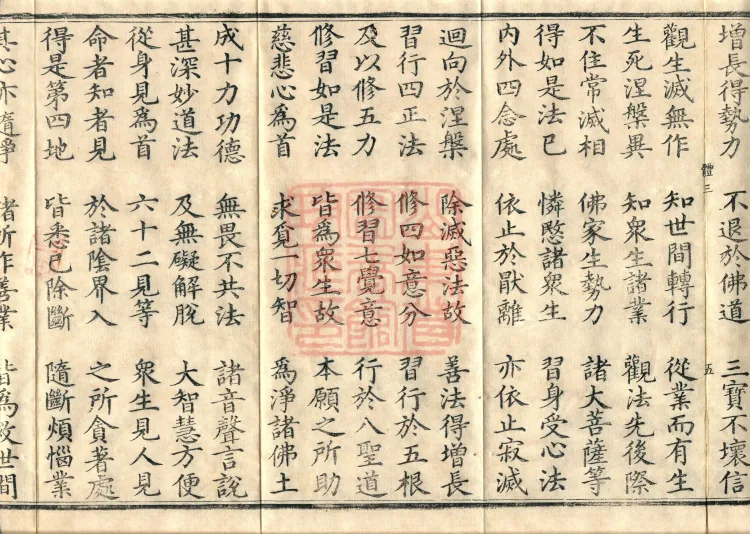 增長得勢力 不退於佛道 三寶不壞信
觀生滅無作 知世間轉行 從業而有生
生死涅槃異 知衆生諸業 觀法先後際
不住常滅相 佛家生勢力 諸大菩薩等
得如是法已 憐愍諸衆生 習身受心法
內外四念處 依止於厭離 亦依止寂滅
迴向於涅槃 除滅惡法故 善法得增長
習行四正法 修四如意分 習行於五根
及以修五力 修習七覺意 行於八聖道
修習如是法 皆爲衆生故 本願之所助
慈悲心爲首 求覓一切智 爲淨諸佛土
成十力功德 無畏不共法 諸音聲言說
甚深妙道法 及無礙解脫 大智慧方便
從身見爲首 六十二見等 衆生見人見
命者知者見 於諸陰界入 之所貪著處
得是第四地 皆悉已除斷 隨斷煩惱業
其心亦隨淨 諸所作善業 皆爲度世間
體三
五